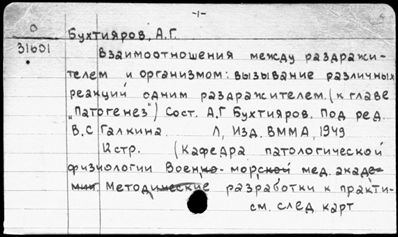 -1-
О Бухтияров, А.Г.
31601
Взаимоотношения между раздражи-
телем и организмом: вызывание различных
реакций одним раздражителем. (к главе
„Патогенез") Сост. А.Г Бухтияров. Под ред.
В.С Галкина Л, Изд. ВММА, 1949
12стр. (Кафедра патологической
физиологии Военно-морской мед. акаде-
мии Методические разработки к практи-
см. след карт